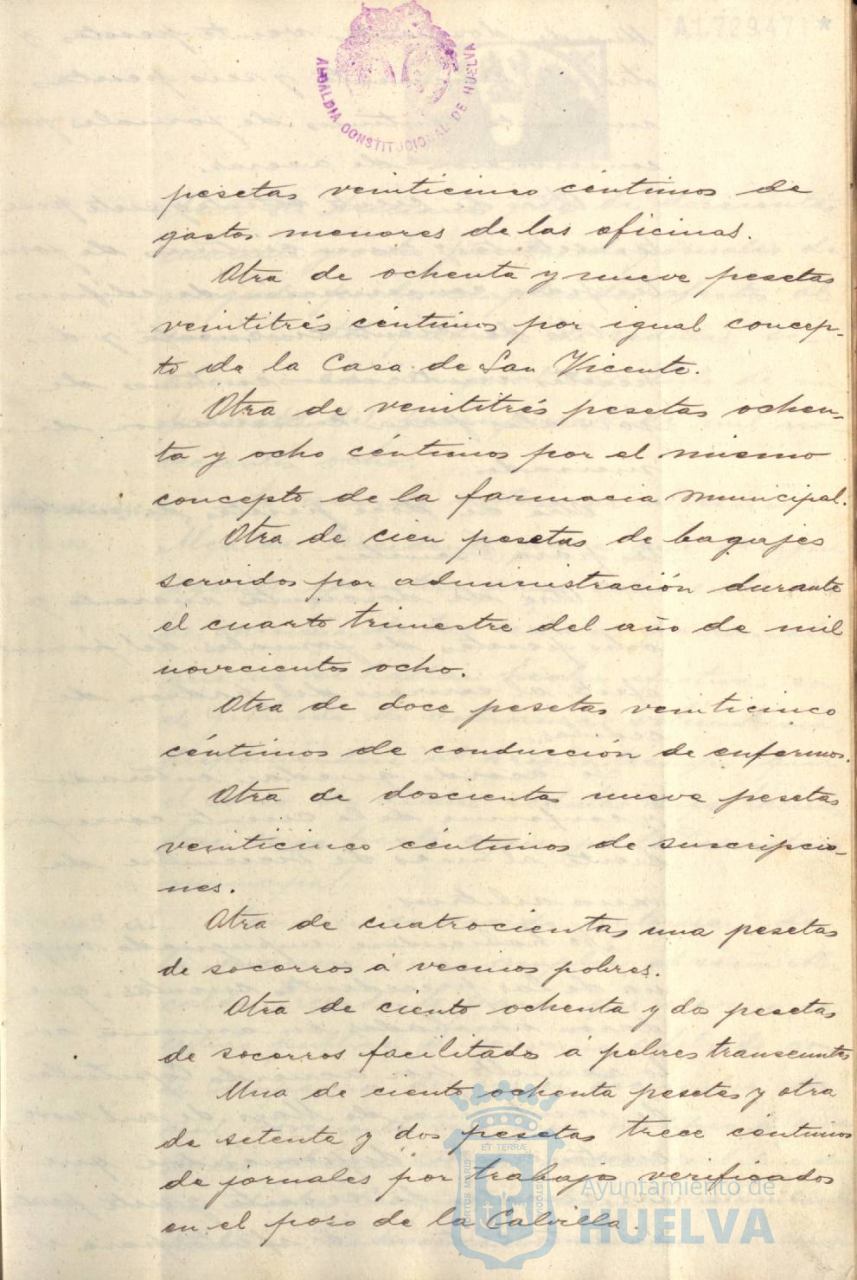 A1.729.471 *
ALCALDIA CONSTITUCIONAL DE HUELVA
pesetas veinticinco céntimos de
gastos menores de las oficinas.
Otra de ochenta y nueve pesetas
veintitrés céntimos por igual concep-
to de la Casa de San Vicente.
Otra de veintitrés pesetas ochen-
ta y ocho céntimos por el mismo
concepto de la farmacia municipal.
Otra de cien pesetas de bagajes
servidos por administración durante
el cuarto trimestre del año de mil
novecientos ocho.
Otra de doce pesetas veinticinco
céntimos de conducción de enfermos.
Otra de doscientas nueve pesetas
veinticinco céntimos de suscripcio-
nes.
Otra de cuatrocientas una pesetas
de socorros á vecinos pobres.
Otra de ciento ochenta y dos pesetas
de socorros facilitados á pobres transeuntes
Una de ciento ochenta pesetas y otra
de setenta y dos pesetas trece céntimos
de jornales por trabajos verificados
en el pozo de la Calvilla.
Ayuntamiento de
HUELVA